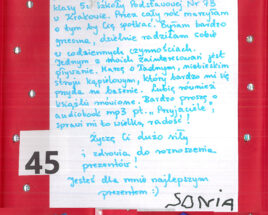 klasy 5c Szkoły Podstawowej Nr 73
w Krakowie. Przez cały rok marzyłam
o tym by Cię spotkać. Byłam bardzo
grzeczna, dzielnie radziłam sobie
w codziennych czynnościach.
Jednym z moich zainteresowań jest
pływanie. Marzę o ładnym, niebieskim
stroju kąpielowym, który bardzo mi się
przyda na basenie. Lubię również
książki mówione. Bardzo proszę o
audiobook mp3 pt. "Przyjaciele",
sprawi mi to wielką radość!
Życzę Ci dużo siły
i zdrowia do roznoszenia
prezentów!
Jesteś dla mnie najlepszym
prezentem :)
45
SONIA